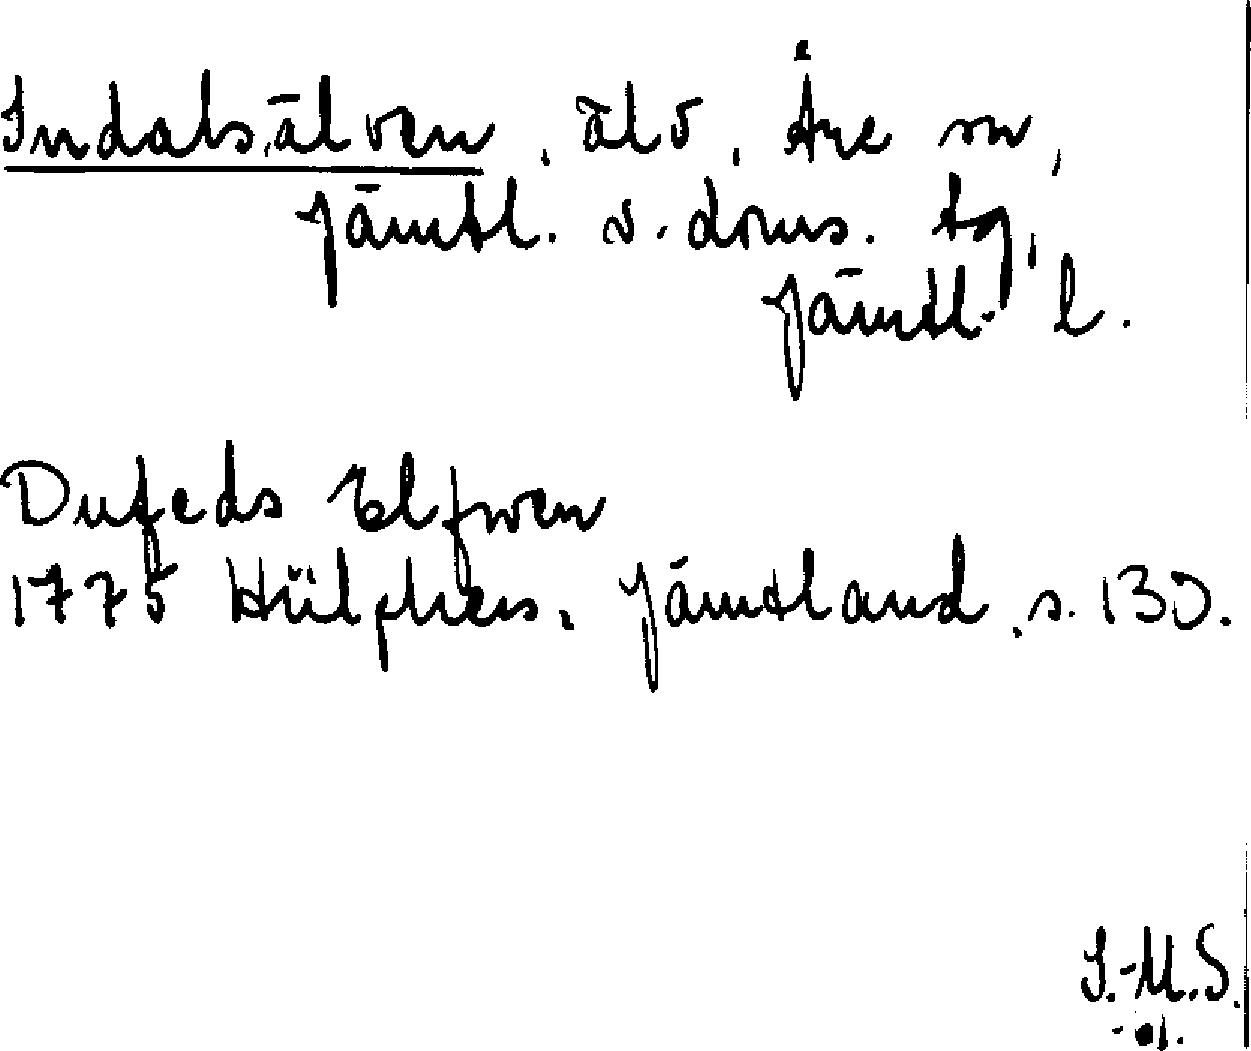 Indalsälven, älv, Åre sn,
Jämtl. v. doms. tg,
Jämtl. l.
Dufeds Elfwen
1775 Hülphers, Jämtland, s. 130.
I.-M.S.